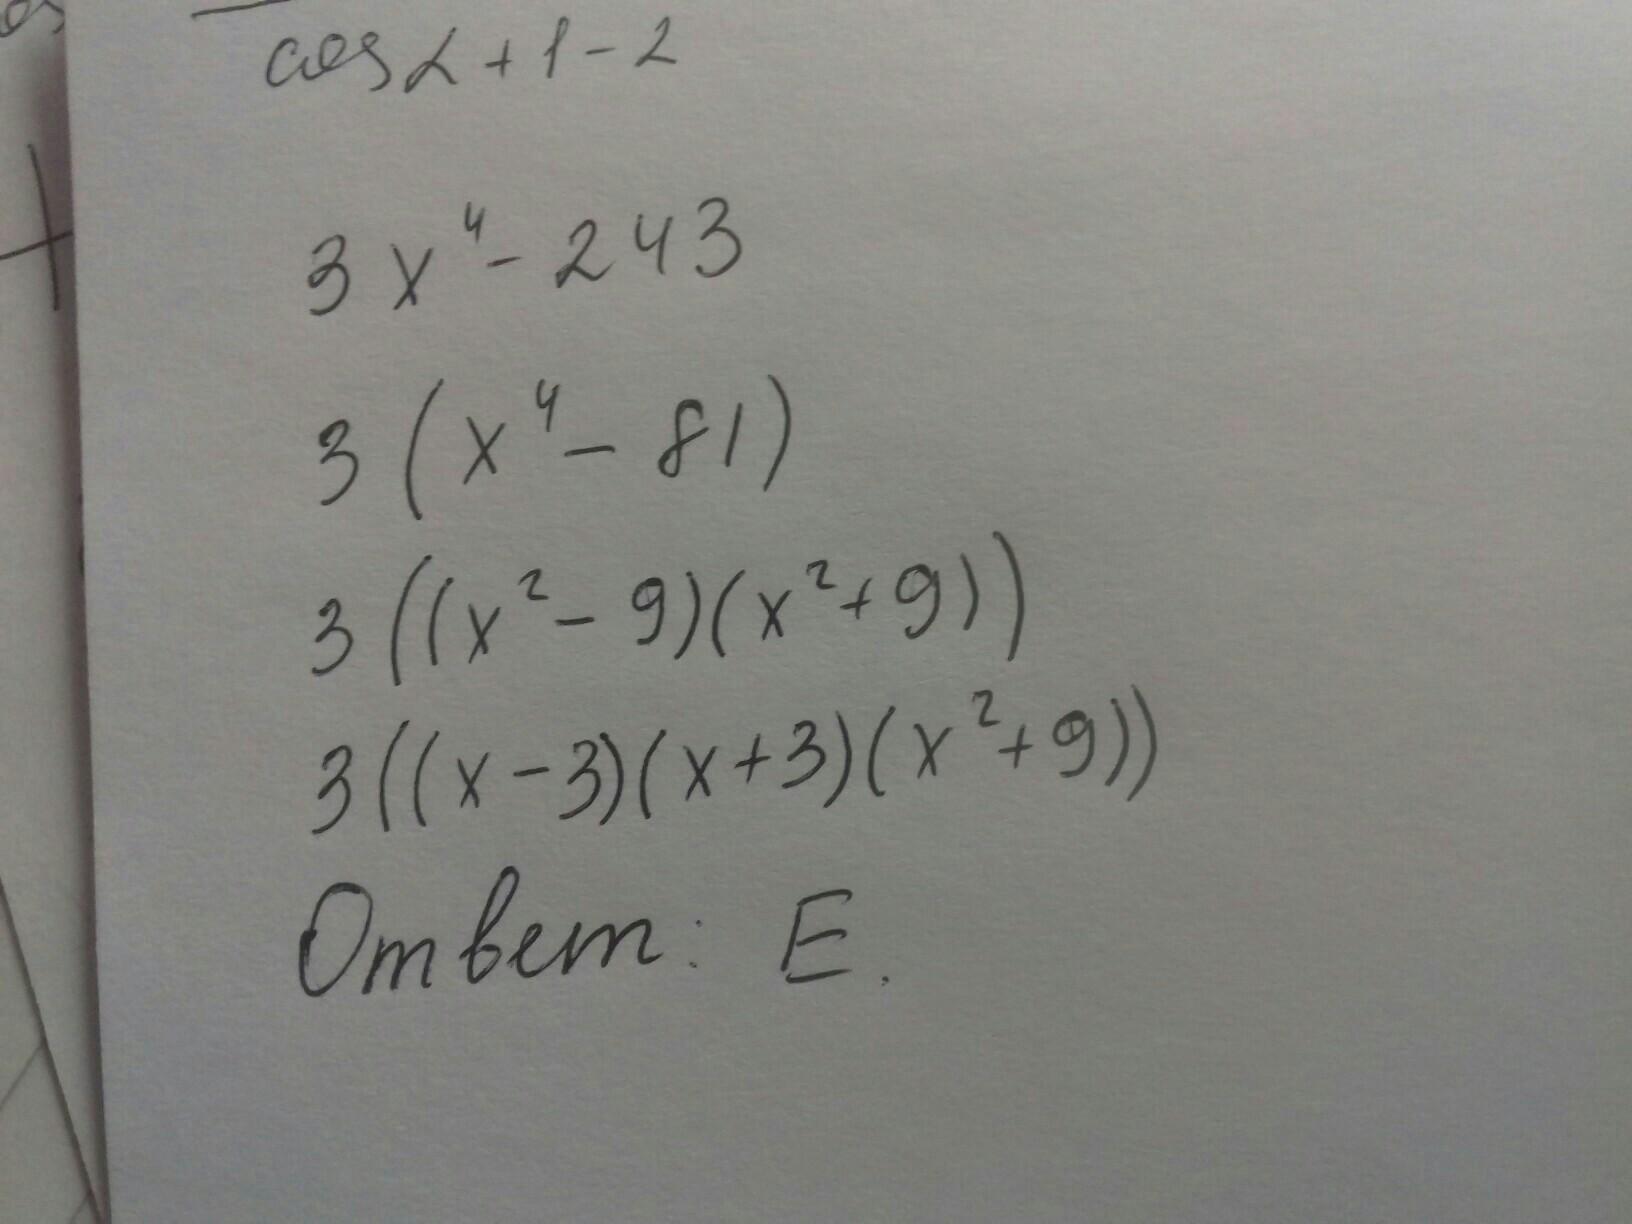 cos α + 1 - 2
3x⁴ - 243
3(x⁴ - 81)
3((x² - 9)(x² + 9))
3((x - 3)(x + 3)(x² + 9))
Ответ: E.